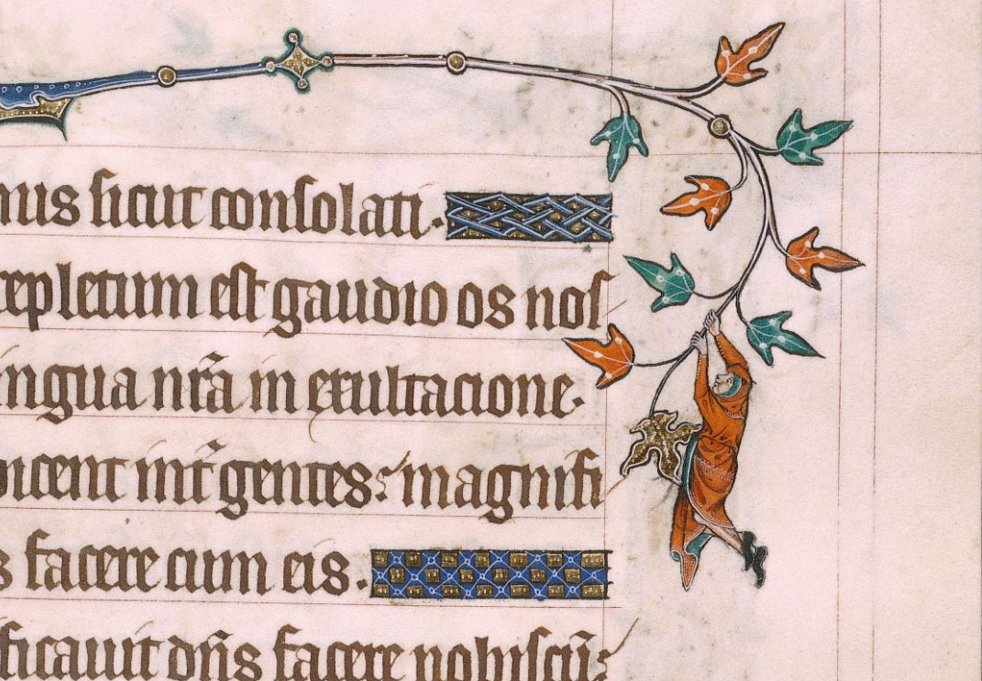 nus sicut consolati.
repletum est gaudio os nos
ingua nr̄a in exultacione.
dicent int̄ gentes: magnifi
s facere cum eis.
ificauit dn̄s facere nobiscū: